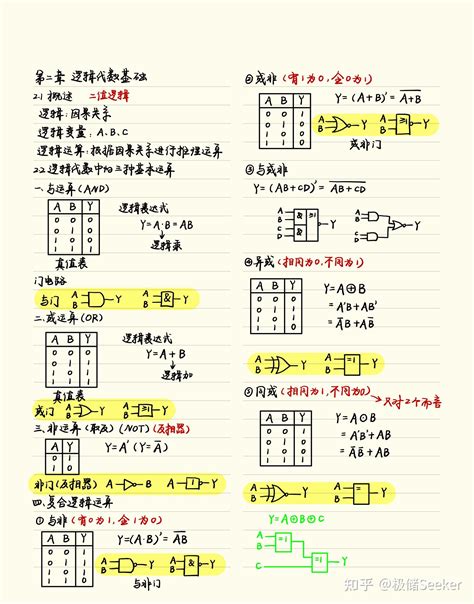 第二章 逻辑代数基础
2.1 概述 二值逻辑
逻辑：因果关系
逻辑变量：A、B、C
逻辑运算：根据因果关系进行推理运算
2.2 逻辑代数中的三种基本运算
一.与运算(AND)
A B Y
0 0 0
0 1 0
1 0 0
1 1 1
真值表
逻辑表达式
Y=A·B=AB
逻辑乘
门电路
与门 A B Y A B & Y
二.或运算(OR)
A B Y
0 0 0
0 1 1
1 0 1
1 1 1
真值表
逻辑表达式
Y=A+B
逻辑加
或门 A B Y A B ≥1 Y
三.非运算(取反)(NOT)(反相器)
A Y
0 1
1 0
Y=A'(Y=A̅)
非门(反相器) A B A 1 Y
四.复合逻辑运算
①与非(有0为1,全1为0)
A B Y
0 0 1
0 1 1
1 0 1
1 1 0
Y=(A·B)'=A̅B̅
A B Y A B & Y
与非门
②或非(有1为0,全0为1)
A B Y
0 0 1
0 1 0
1 0 0
1 1 0
Y=(A+B)'=A̅+̅B̅
A B Y A B ≥1 Y
或非门
③与或非
Y=(AB+CD)'=A̅B̅+̅C̅D̅
A B C D & ≥1 Y A B C D Y
④异或(相同为0,不同为1)
A B Y
0 0 0
0 1 1
1 0 1
1 1 0
Y=A⊕B
=A'B+AB'
=A̅B+AB̅
A B Y A B =1 Y
⑤同或(相同为1,不同为0)
只对2个而言
A B Y
0 0 1
0 1 0
1 0 0
1 1 1
Y=A⊙B
=A'B'+AB
=A̅B̅+AB
A B Y A B =1 Y
Y=A⊕B⊕C
A B =1 C =1 Y
知乎 @极储Seeker